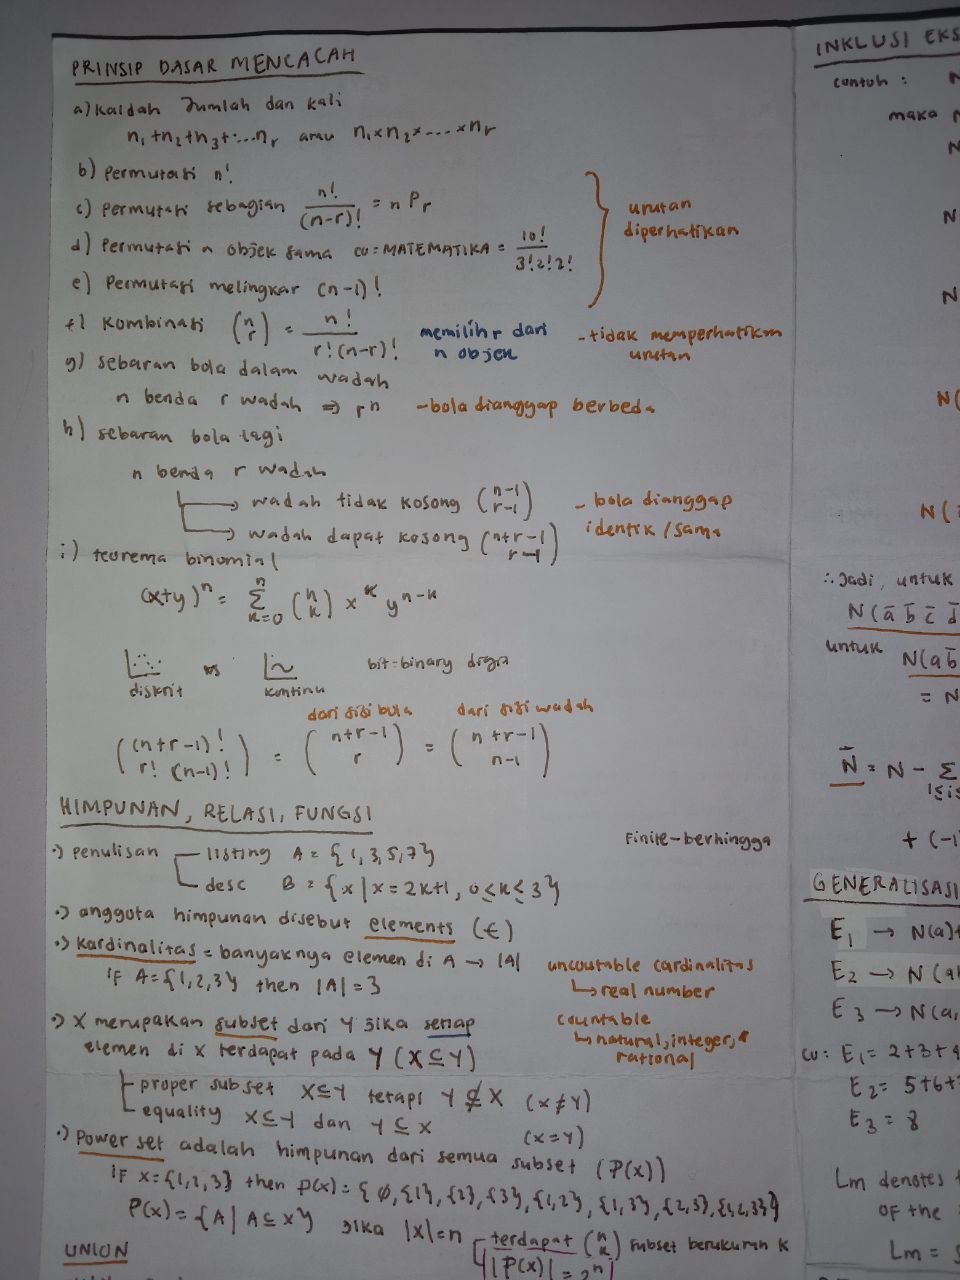 PRINSIP DASAR MENCACAH
a) Kaidah Jumlah dan kali
n₁ + n₂ + n₃ + ... nᵣ atau n₁ × n₂ × ... × nᵣ
b) Permutasi n!
c) Permutasi sebagian n!/(n-r)! = n Pᵣ
d) Permutasi n objek sama co: MATEMATIKA = 10!/3!2!2!
e) Permutasi melingkar (n-1)!
urutan
diperhatikan
f) Kombinasi (n r) = n!/r!(n-r)! memilih r dari
n objek
- tidak memperhatikan
urutan
g) sebaran bola dalam wadah
n benda r wadah ⇒ rⁿ - bola dianggap berbeda
h) sebaran bola lagi
n benda r wadah
→ wadah tidak kosong (n-1 r-1)
→ wadah dapat kosong (n+r-1 r-1)
- bola dianggap
identik / sama
i) teorema binomial
(x+y)ⁿ = Σ k=0 n (n k) xᵏ yⁿ⁻ᵏ
diskrit vs kontinu bit = binary digit
dari sisi bola dari sisi wadah
((n+r-1)! r! (n-1)!) = (n+r-1 r) = (n+r-1 n-1)
HIMPUNAN, RELASI, FUNGSI
•) penulisan listing A = {1,3,5,7}
desc B = {x | x = 2k+1, 0≤k≤3}
Finite - berhingga
•) anggota himpunan disebut elements (∈)
•) kardinalitas = banyaknya elemen di A → |A|
if A = {1,2,3} then |A| = 3
uncoutable cardinalitas
↳ real number
countable
↳ natural, integer,
rational
•) X merupakan subset dari Y jika setiap
elemen di X terdapat pada Y (X ⊆ Y)
proper subset X ⊆ Y tetapi Y ⊈ X (X ≠ Y)
equality X ⊆ Y dan Y ⊆ X (X = Y)
•) Power set adalah himpunan dari semua subset (P(X))
if X = {1,2,3} then P(X) = {∅, {1}, {2}, {3}, {1,2}, {1,3}, {2,3}, {1,2,3}}
P(X) = {A | A ⊆ X} jika |X| = n
terdapat (n k) subset berukuran k
|P(X)| = 2ⁿ
UNION
INKLUSI EKS
contoh : N
maka N
N
N
N
N(
N(
∴ Jadi, untuk
N(ā b̄ c̄ d̄
untuk
N(a b̄
= N
N̄ = N - Σ
1≤i≤
+ (-1
GENERALISASI
E₁ → N(a)+
E₂ → N(ab
E₃ → N(a,
co: E₁ = 2+3+4
E₂ = 5+6+
E₃ = 8
Lm denotes
of the
Lm =